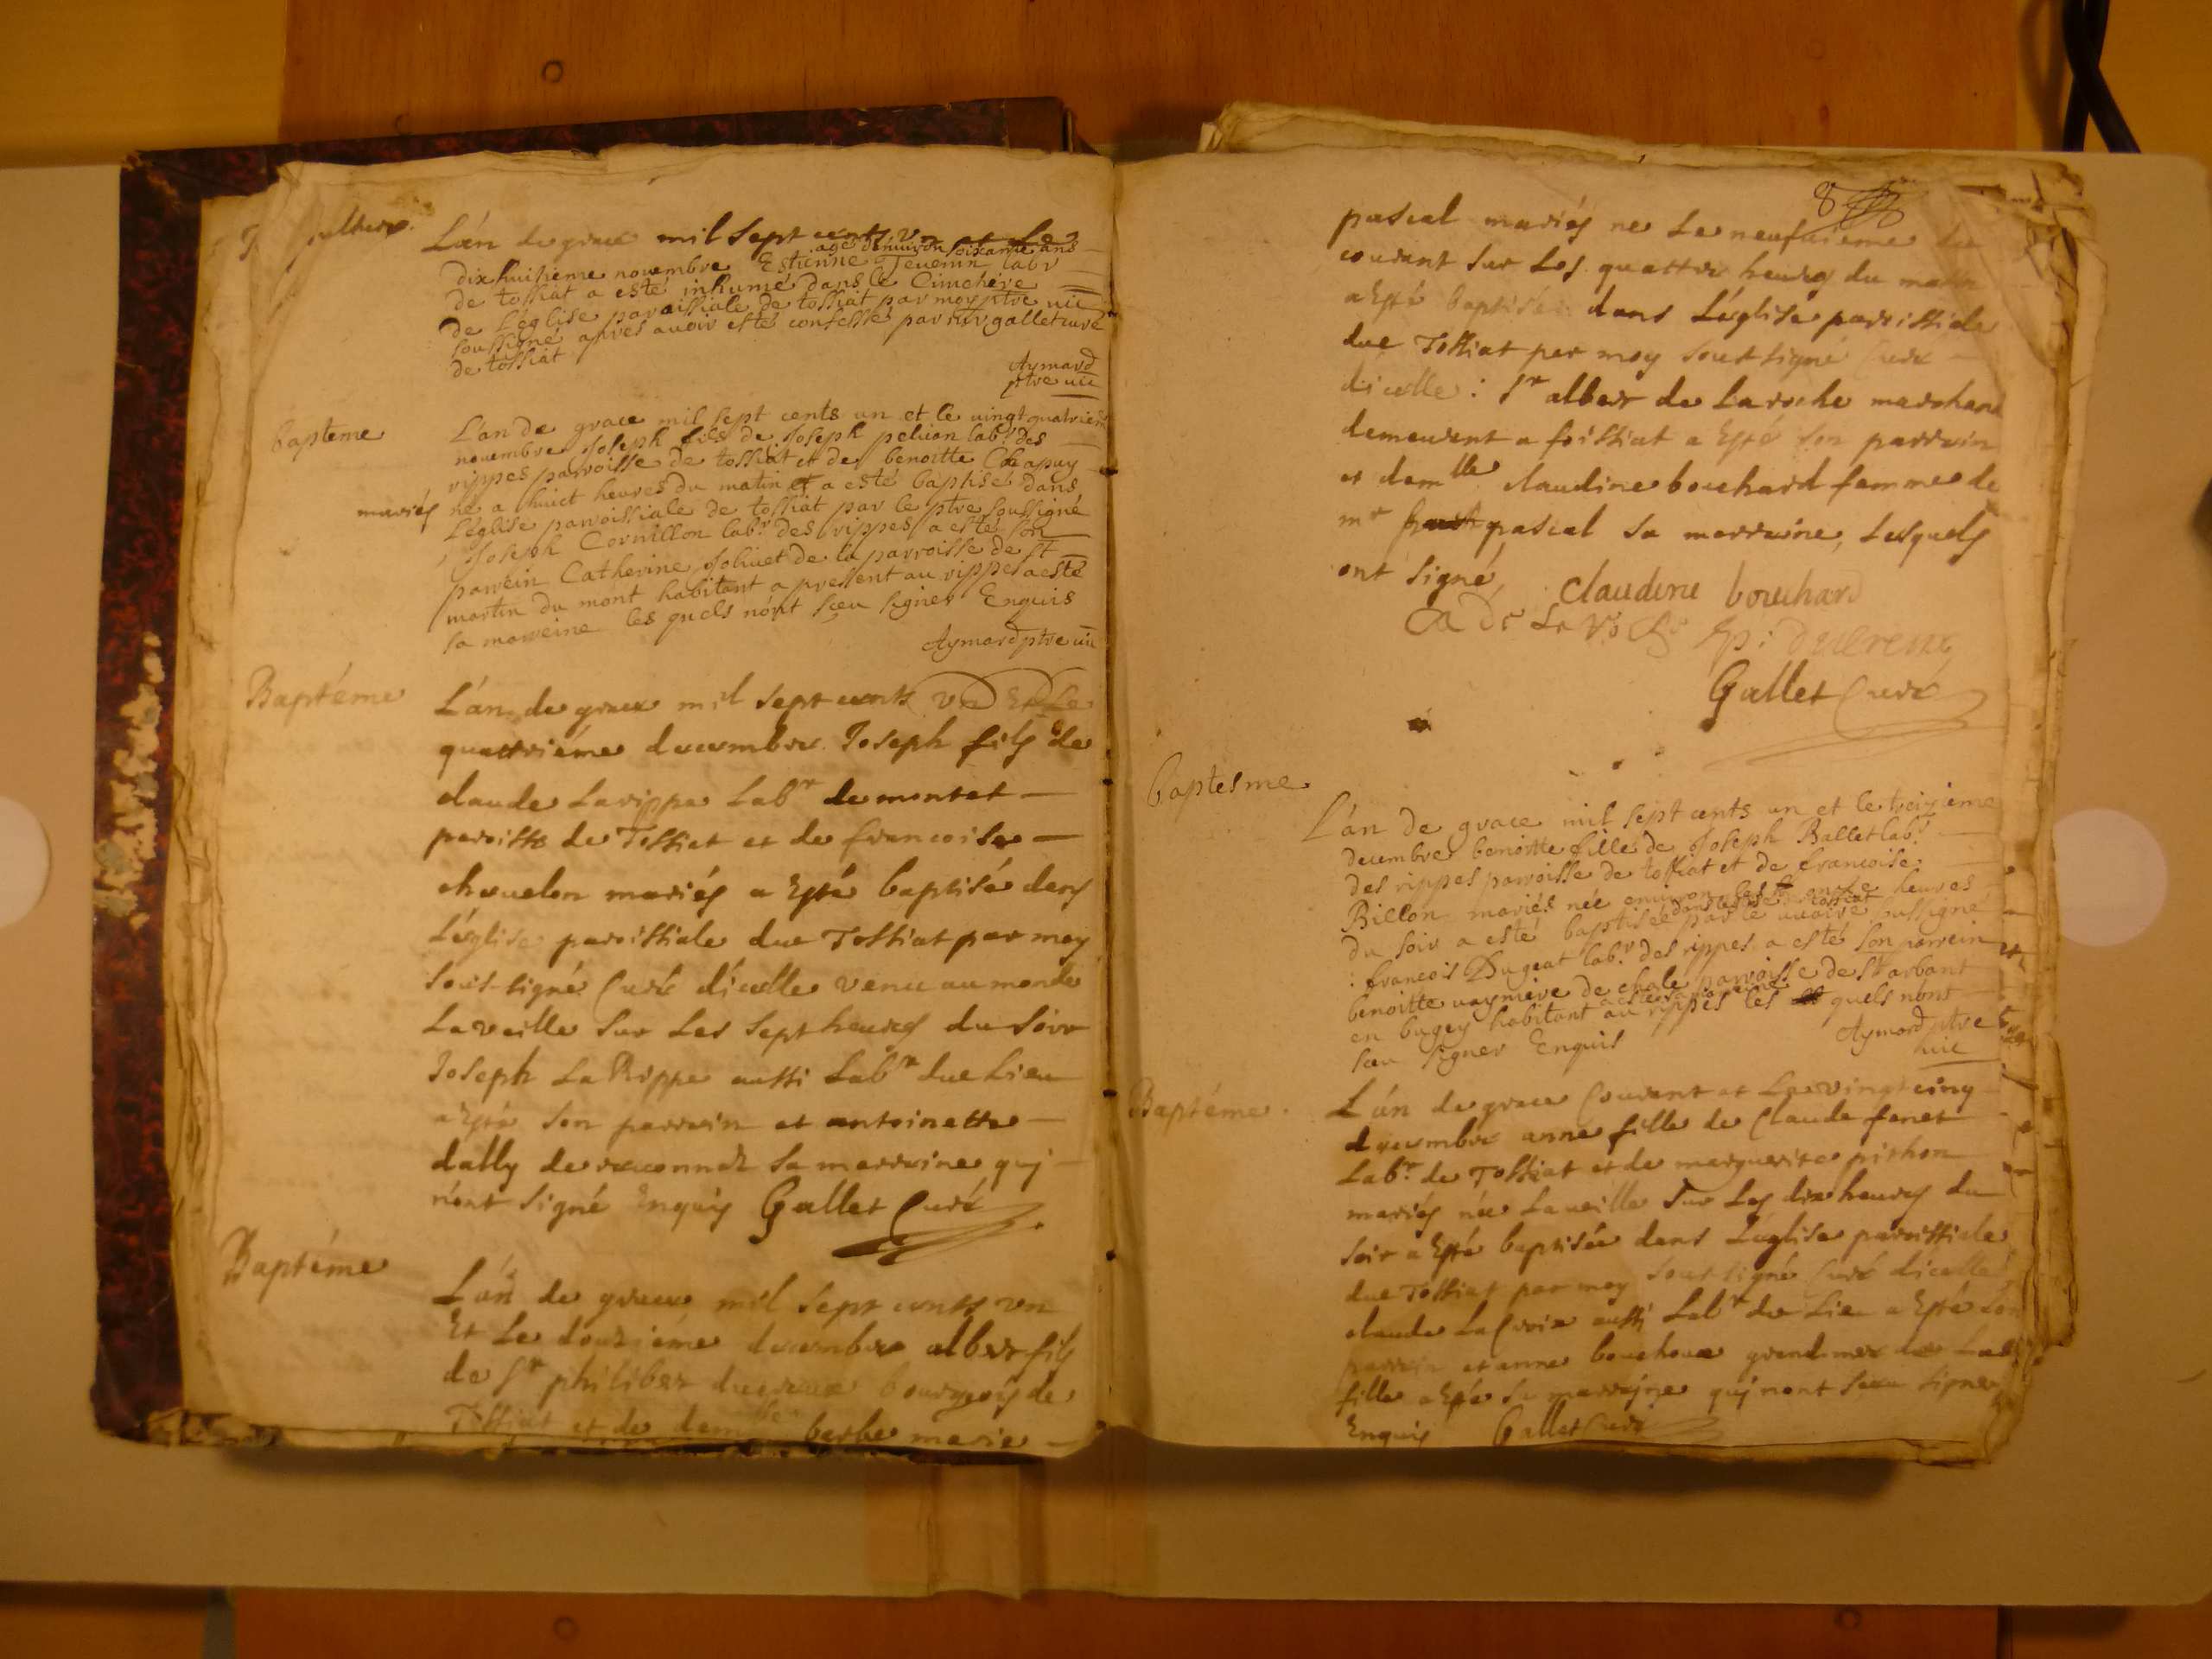 L'an de grace mil sept cents vn et le
agé denuiron soixante ans
dixhuitieme nouembre Estienne Teuenin labr
de tossiat a esté inhumé dans le Cimetiere
de L'eglise paroissiale de tossiat par moy ptre uic
soussigné apres auoir esté confessé par mr gallet curé
de tossiat
Aymard
ptre uic
bapteme
L'an de grace mil sept cents un et le uingtquatriem
nouembre Joseph fils de Joseph peluon labr des
rippes parroisse de tossiat et de benoitte Chapuy
mariés
né a huict heures du matin et a esté baptisé dans
L'eglise parroissiale de tossiat par le ptre soussigné
Joseph Cornillon labr des rippes a esté son
parrein Catherine Joliuet de la parroisse de st
martin du mont habitant a present au rippes a esté
sa marreine les quels n'ont sceu signer Enquis
Aymard ptre uic
Baptéme
L'án de grace mil sept cents vn Et Le
quattriéme decembre Joseph fils de
claude Larippe Labr de montet
paroisse de Tossiat et de francoise
cheuelon mariés a Esté baptisé dans
L'église paroissiale due Tossiat par moy
sous-signé Curé d'icelle venu au monde
La veille sur Les sept heures du soir
Joseph La Rippe aussi Labr due Lieu
a Esté son parrain et antoinette
dally de sa marraine quj
n'ont signé Enquis Gallet Curé
Baptéme
L'án de grace mil sept cents vn
Et Le douziéme decembre alber fils
de Sr philiber ducreux bourgeois de
Tossiat et de demlle barbe marie
8
pascal mariés né Le neufuieme du
courant sur Les quattre heures du matin
a Esté baptisé dans L'église parissiale
due Tossiat par moy sous signé Curé
d'icelle : Sr alber de Laroche marchand
demeurant a foissiat a Esté son parrain
et demlle claudine bouchard femme de
mr pascal sa marraine, Lesquels
ont signé,
claudine bouchard
p: ducreux
Gallet Curé
baptesme
L'án de grace mil sept cents un et le treizieme
decembre benoitte fille de Joseph Ballet labr
des rippes parroisse de tossiat et de francoise
Billon mariés née enuiron les onze heures
dans l'eglise de tossiat
du soir a esté baptisée par le uicaire soussigné
: francois Dugeat labr des rippes a esté son parrein
benoitte uaymiere de chale parroisse de st arbant
a esté sa marreine
en bugey habitant au rippes les quels n'ont
sceu signer Enquis
Aymard ptre
uic
Baptéme.
L'án de grace Courant et Le vingt cinq
decembre anne fille de Claude fenet
Labr de Tossiat et de marguerite pithon
mariés née La ueille sur Les dix heures du
soir a Esté baptisée dans L'église parissiale
due Tossiat par moy sous signé Curé d'icelle
claude La Croix aussi Labr du Lieu a Esté son
parrain et anne bouchoux grand mere
fille a Esté sa marraine quj nont sceu signer
Enquis Gallet Curé